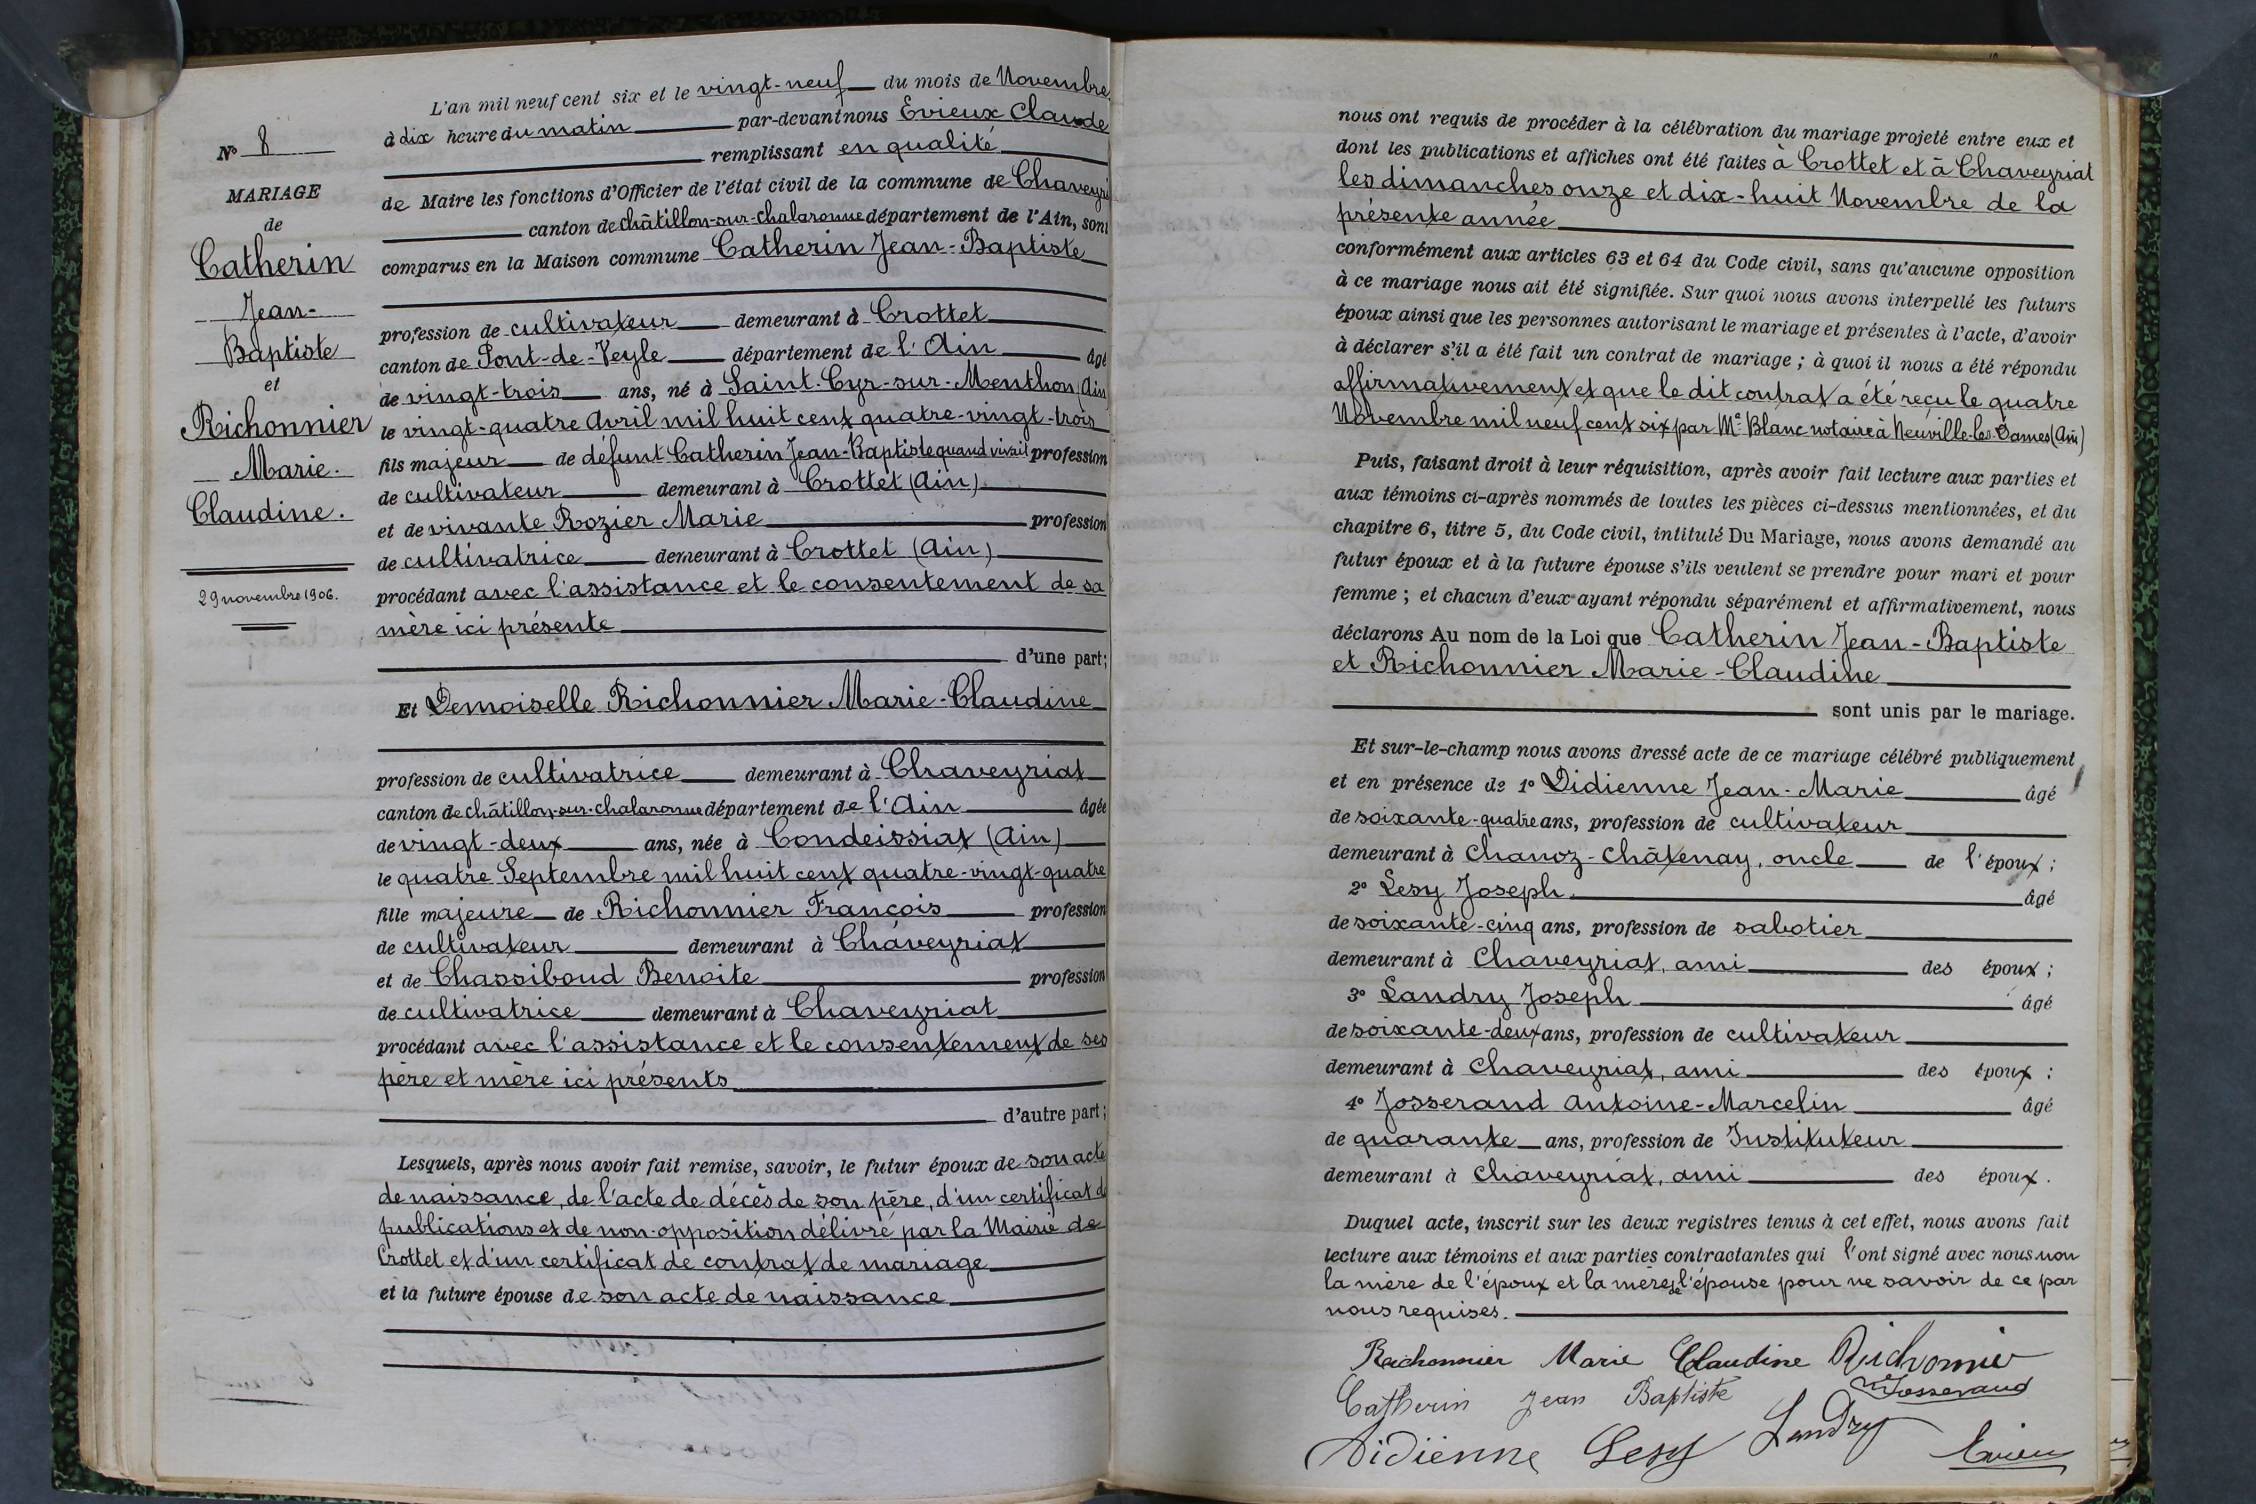 N° 8
MARIAGE
de
Catherin
Jean-
Baptiste
et
Richonnier
Marie-
Claudine.
29 novembre 1906.
L'an mil neuf cent six et le vingt-neuf du mois de Novembre
à dix heure du matin par-devant nous Evieux Claude
remplissant en qualité
de Maire les fonctions d'Officier de l'état civil de la commune de Chaveyri
canton de châtillon-sur-chalaronne département de l'Ain, sont
comparus en la Maison commune Catherin Jean-Baptiste
profession de cultivateur demeurant à Crottet
canton de Pont-de-Veyle département de l'Ain âgé
de vingt-trois ans, né à Saint-Cyr-sur-Menthon (Ain)
le vingt-quatre Avril mil huit cent quatre-vingt-trois
fils majeur de défunt Catherin Jean-Baptiste quand vivait profession
de cultivateur demeurant à Crottet (Ain)
et de vivante Rozier Marie profession
de cultivatrice demeurant à Crottet (Ain)
procédant avec l'assistance et le consentement de sa
mère ici présente
d'une part;
Et Demoiselle Richonnier Marie-Claudine
profession de cultivatrice demeurant à Chaveyriat
canton de châtillon-sur-chalaronne département de l'Ain âgée
de vingt-deux ans, née à Condeissiat (Ain)
le quatre Septembre mil huit cent quatre-vingt-quatre
fille majeure de Richonnier François profession
de cultivateur demeurant à Chaveyriat
et de Chassiboud Benoite profession
de cultivatrice demeurant à Chaveyriat
procédant avec l'assistance et le consentement de ses
père et mère ici présents
d'autre part;
Lesquels, après nous avoir fait remise, savoir, le futur époux de son acte
de naissance, de l'acte de décès de son père, d'un certificat de
publications et de non-opposition délivré par la Mairie de
Crottet et d'un certificat de contrat de mariage
et la future épouse de son acte de naissance
nous ont requis de procéder à la célébration du mariage projeté entre eux et
dont les publications et affiches ont été faites à Crottet et à Chaveyriat
les dimanches onze et dix-huit Novembre de la
présente année
conformément aux articles 63 et 64 du Code civil, sans qu'aucune opposition
à ce mariage nous ait été signifiée. Sur quoi nous avons interpellé les futurs
époux ainsi que les personnes autorisant le mariage et présentes à l'acte, d'avoir
à déclarer s'il a été fait un contrat de mariage ; à quoi il nous a été répondu
affirmativement et que le dit contrat a été reçu le quatre
Novembre mil neuf cent six par Me Blanc notaire à Neuville-les-Dames (Ain)
Puis, faisant droit à leur réquisition, après avoir fait lecture aux parties et
aux témoins ci-après nommés de toutes les pièces ci-dessus mentionnées, et du
chapitre 6, titre 5, du Code civil, intitulé Du Mariage, nous avons demandé au
futur époux et à la future épouse s'ils veulent se prendre pour mari et pour
femme ; et chacun d'eux ayant répondu séparément et affirmativement, nous
déclarons Au nom de la Loi que Catherin Jean-Baptiste
et Richonnier Marie-Claudine
sont unis par le mariage.
Et sur-le-champ nous avons dressé acte de ce mariage célébré publiquement
et en présence de 1° Didienne Jean-Marie âgé
de soixante-quatre ans, profession de cultivateur
demeurant à Chanoz-Châtenay, oncle de l'époux ;
2° Lesy Joseph âgé
de soixante-cinq ans, profession de sabotier
demeurant à Chaveyriat, ami des époux ;
3° Landry Joseph âgé
de soixante-deux ans, profession de cultivateur
demeurant à Chaveyriat, ami des époux ;
4° Josserand Antoine-Marcelin âgé
de quarante ans, profession de Instituteur
demeurant à Chaveyriat, ami des époux.
Duquel acte, inscrit sur les deux registres tenus à cet effet, nous avons fait
lecture aux témoins et aux parties contractantes qui l'ont signé avec nous non
la mère de l'époux et la mère de l'épouse pour ne savoir de ce par
nous requises.
Richonnier Marie Claudine Richonnier
Catherin Jean Baptiste Josserand
Didienne Lesy Landry Evieux